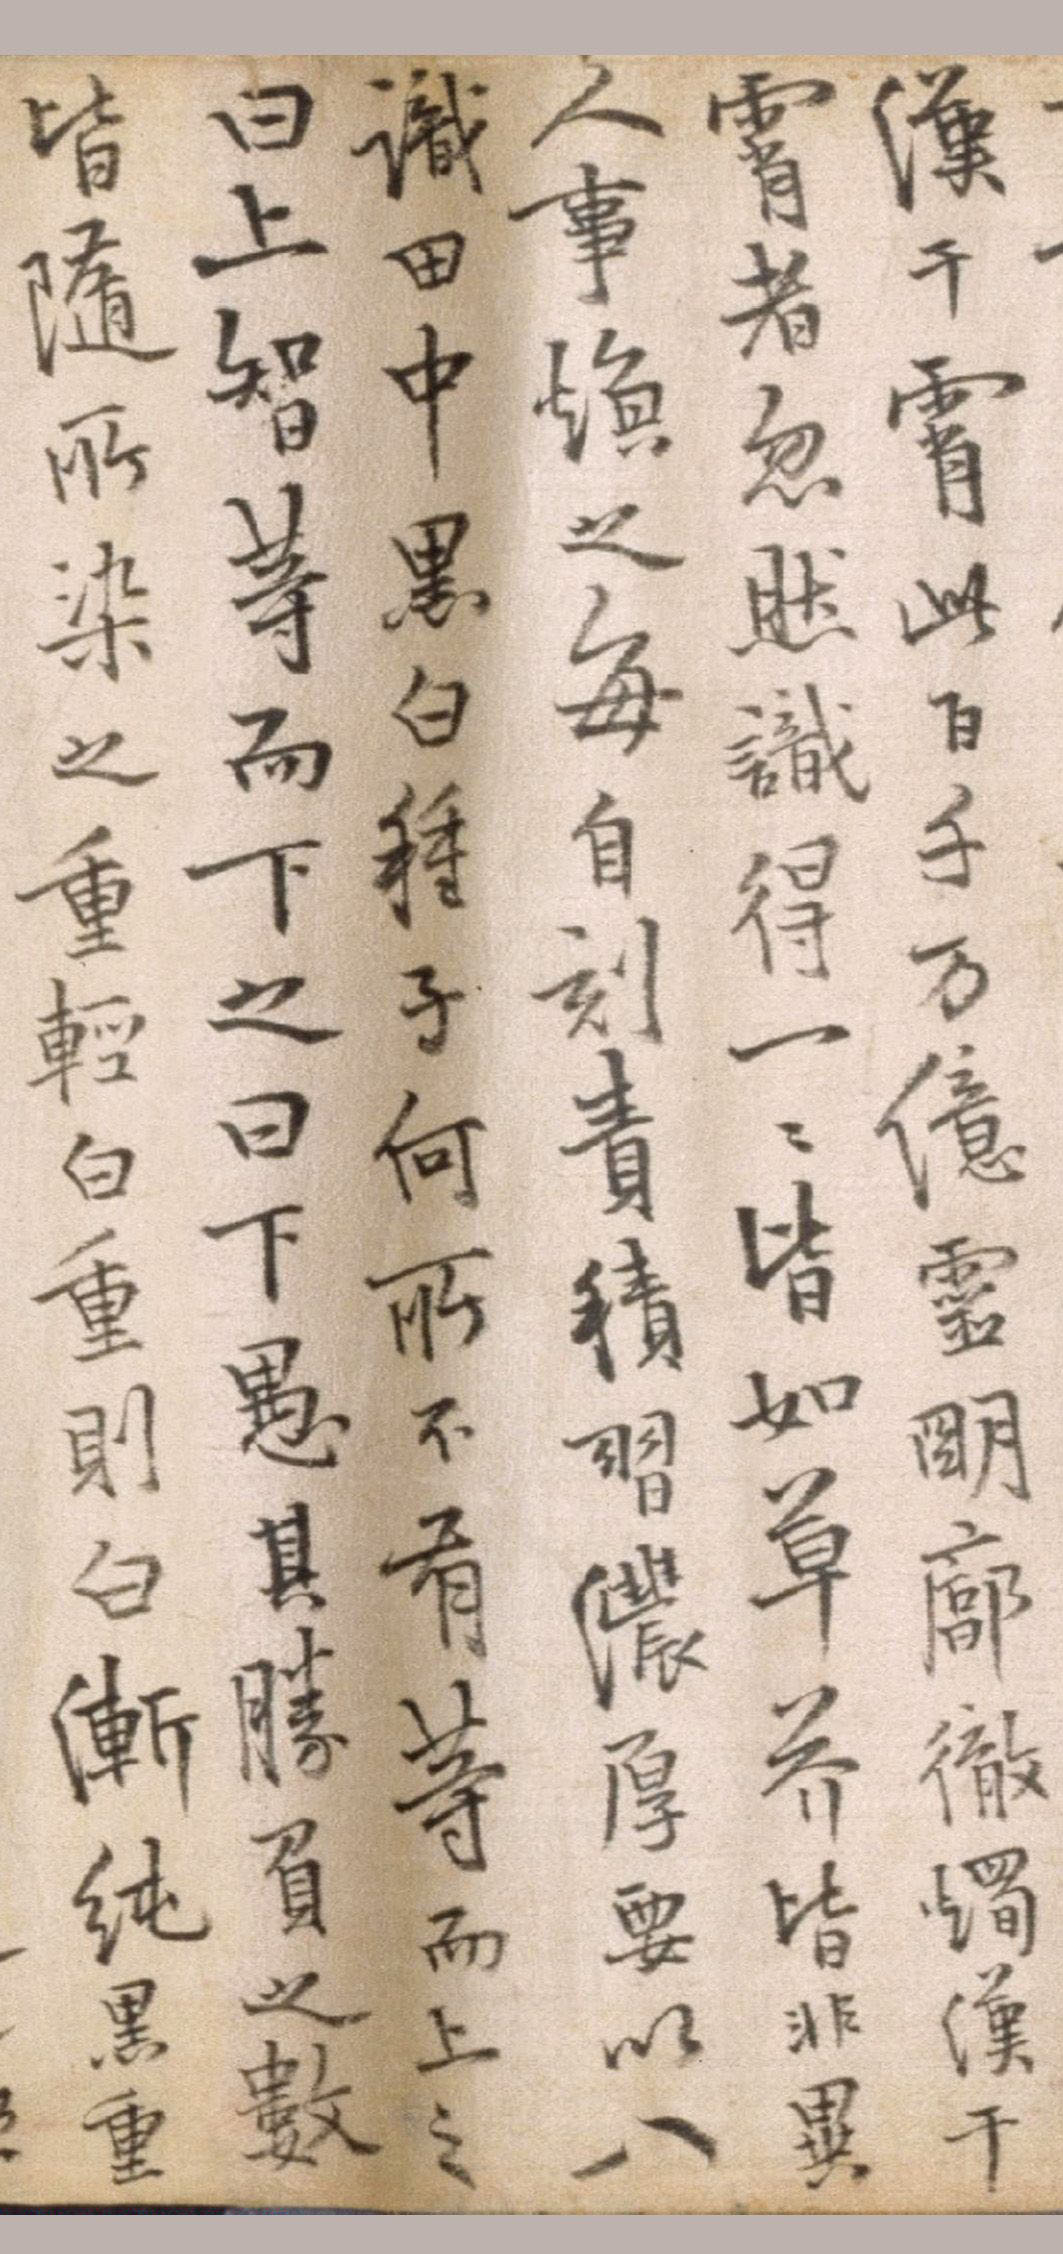 漢干霄此百千万億靈明廓徹燭漢干
霄者忽然識得一〻皆如草芥皆非異
人事慎之每自刻責積習濃厚要以八
識田中黒白種子何所不有等而上之
曰上智等而下之曰下愚其勝負之數
皆隨所染之重輕白重則白漸純黒重